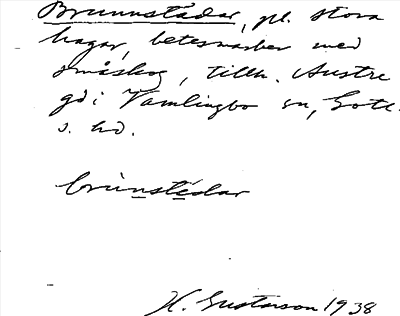 Brunnstädar, pl. stora
hagar, betesmarker med
småskog, tillh. Austre
gd i Vamlingbo sn, Gotl.
s. hd.
brùnstädar
H. Gustavson 1938